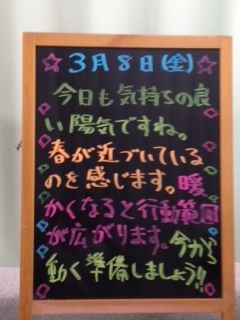 ☆3月8日(金)☆
今日も気持ちの良
い陽気ですね。
春が近づいている
のを感じます。暖
かくなると行動範囲
が広がります。今から
動く準備しましょう!!